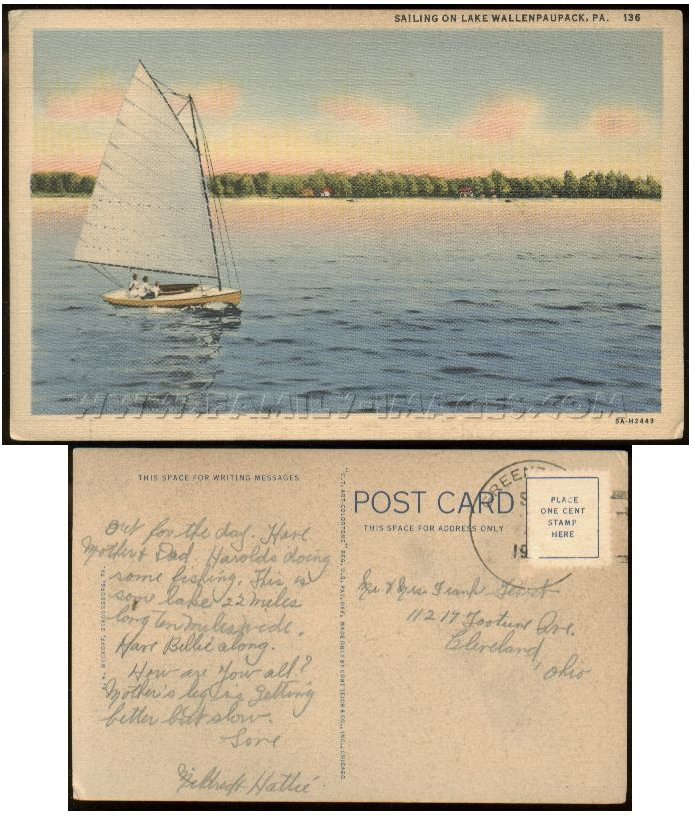 SAILING ON LAKE WALLENPAUPACK, PA. 136
WWW.FAMILY-IMAGES.COM
5A-H2449
THIS SPACE FOR WRITING MESSAGES
Out for the day. Have
Mother & Dad. Harolds doing
some fishing. This is
some lake 22 miles
long ten miles wide.
Have Billie along.
How are you all?
Mother's leg is getting
better but slow.
Love
Hattie
WYCKOFF, STROUDSBURG, PA.
"C.T. ART-COLORTONE" REG. U.S. PAT. OFF. MADE ONLY BY CURT TEICH & CO., INC., CHICAGO
POST CARD
THIS SPACE FOR ADDRESS ONLY
PLACE
ONE CENT
STAMP
HERE
Mr & Mrs. Frank
11217 Ave.
Cleveland,
Ohio